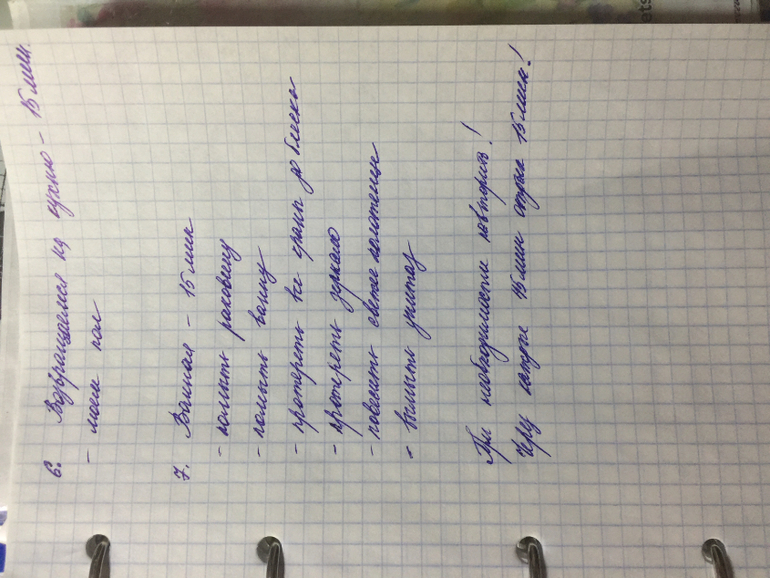 6. Возвращаемся на кухню - 15 мин.
- моем пол
7. Ванная - 15 мин
- помыть раковину
- помыть ванну
- протереть все краны до блеска
- протереть зеркало
- повесить свежее полотенце
- вымыть унитаз
При необходимости повторить!
Через каждые 45 мин отдых 15 мин!
ets